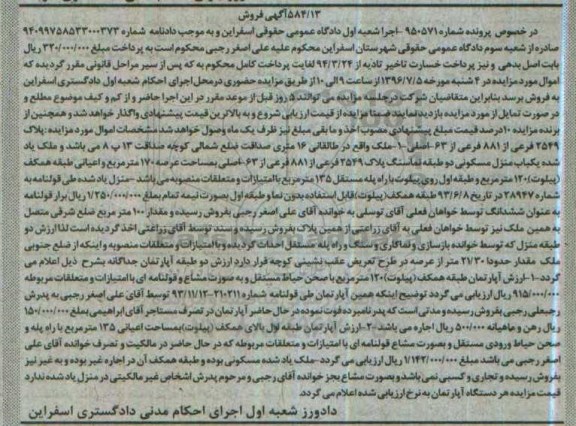 ۵۸۴/۱۳ آگهی فروش
در خصوص پرونده شماره ۹۵۰۵۷۱-اجرا شعبه اول دادگاه عمومی حقوقی اسفراین و به موجب دادنامه شماره ۹۴۰۹۹۷۵۸۵۳۳۰۰۰۳۷۳
صادره از شعبه سوم دادگاه عمومی حقوقی شهرستان اسفراین محکوم علیه علی اصغر رجبی محکوم است به پرداخت مبلغ ۳۲۰/۰۰۰/۰۰۰ ریال
بابت اصل بدهی و نیز پرداخت خسارت تاخیر تادیه از ۹۴/۳/۲۴ لغایت پرداخت کامل محکوم به که پس از سیر مراحل قانونی مقرر گردیده که
اموال مورد مزایده در ۴ شنبه مورخه ۱۳۹۶/۷/۵ از ساعت ۹ الی ۱۰ از طریق مزایده حضوری در محل اجرای احکام شعبه اول دادگستری اسفراین
به فروش برسد بنابراین متقاضیان شرکت در جلسه مزایده می توانند ۵ روز قبل از موعد مقرر در این اجرا حاضر و از کم و کیف موضوع مطلع و
در صورت تمایل از مورد مزایده بازدید نمایند مبنا مزایده از قیمت ارزیابی شروع و به بالاترین قیمت پیشنهادی واگذار خواهد شد و همچنین از
برنده مزایده ۱۰ درصد قیمت مبلغ پیشنهادی مصوب اخذ و مابقی مبلغ نیز ظرف یک ماه وصول خواهد شد مشخصات اموال مورد مزایده: پلاک
۲۵۴۹ فرعی از ۸۸۱ فرعی از ۶۳-اصلی-۱-ملک واقع در طالقانی ۱۶ متری صداقت ضلع شمالی کوچه صداقت ۱۳ پ ۸ می باشد و ملک یاد
شده یکباب منزل مسکونی دو طبقه نماسنگ پلاک ۲۵۴۹ فرعی از ۸۸۱ فرعی از ۶۳-اصلی بمساحت عرصه ۱۷۰ مترمربع و اعیانی طبقه همکف
(پیلوت) ۱۲۰ مترمربع و طبقه اول روی پیلوت با راه پله مستقل ۱۳۵ مترمربع باامتیازات و متعلقات منصوبه می باشد-منزل یاد شده طی قولنامه به
شماره ۲۸۹۴۷ در تاریخ ۹۳/۶/۸ طبقه همکف (پیلوت) قابل استفاده بدون نما و طبقه اول بصورت نیمه تمام بمبلغ ۱/۲۵۰/۰۰۰/۰۰۰ ریال برار قولنامه
به عنوان ششدانگ توسط خواهان فعلی آقای توسلی به خوانده آقای علی اصغر رجبی بفروش رسیده و مقدار ۱۰۰ متر مربع ضلع شرقی متصل
به همین ملک نیز توسط خواهان فعلی به آقای زراعتی از همین پلاک بفروش رسیده و سند توسط آقای زراعتی اخذ گردیده است لذا ارزش دو
طبقه منزل که توسط خوانده بازسازی و نماکاری و سنگ و راه پله مستقل احداث گردیده و باامتیازات و متعلقات منصوبه و اینکه از ضلع جنوبی
ملک مقدار حدودا ۲۱/۳۰ متر از عرصه در طرح تعریض عقب نشینی کوچه قرار دارد ارزش دو طبقه آپارتمان جداگانه بشرح ذیل اعلام می
گردد-۱-ارزش آپارتمان طبقه همکف (پیلوت) ۱۲۰ مترمربع با صحن حیاط مستقل و به صورت مشاع و قولنامه ای باامتیازات و متعلقات مربوطه
۹۱۵/۰۰۰/۰۰۰ ریال ارزیابی می گردد توضیح اینکه همین آپارتمان طی قولنامه شماره ۲۱۰۲۱۱-۹۳/۱۱/۱۲ توسط آقای علی اصغر رجبی به پدرش
رجبعلی رجبی بفروش رسیده و مدتی است که پدر نامبرده فوت نموده در حال حاضر آپارتمان در تصرف مستاجر آقای ابراهیمی بمبلغ ۱۵۰/۰۰۰/۰۰۰
ریال رهن و ماهیانه ۵۰۰/۰۰۰ ریال اجاره می باشد-۲-ارزش آپارتمان طبقه اول بالای همکف (پیلوت) بمساحت اعیانی ۱۳۵ مترمربع با راه پله و
صحن حیاط ورودی مستقل و بصورت مشاع قولنامه ای با امتیازات و متعلقات مربوطه که در حال حاضر در مالکیت و تصرف خوانده آقای علی
اصغر رجبی می باشد مبلغ ۱/۱۴۲/۰۰۰/۰۰۰ ریال ارزیابی می گردد-ملک یاد شده مسکونی بوده و طبقه همکف آن در اجاره غیر بوده و به غیر نیز
بفروش رسیده و تجاری و کسبی نمی باشد و بصورت مشاع بجز خوانده آقای رجبی و مرحوم پدرش اشخاص غیر مالکیتی در منزل یاد شده ندارد
قیمت مزایده هر دستگاه آپارتمان به نرخ ارزیابی شده اعلام می گردد.
دادورز شعبه اول اجرای احکام مدنی دادگستری اسفراین